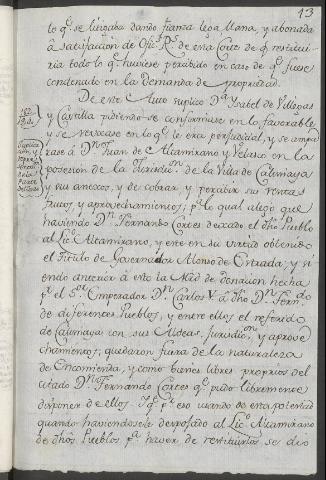 13
lo q.e se litigaba dando fianza lega llana, y abonada
à satisfaccion de Ofi.s R.s de esta Corte de q.e restitui-
ria todo lo q.e huviese percibido en caso de q.e fuese
condenado en la demanda de propriedad.
De este Auto suplicó D.a Isabel de Villegas
y Castilla pidiendo se confirmase en lo favorable
y se revocase en lo q.e le era perjudicial, y se ampa
rase à D.n Juan de Altamirano y Velasco en la
posesion de la Jurisdic.on de la Villa de Calimaya
y sus anexos, y de cobrar y percibir sus rentas
frutos, y aprovechamientos, p.r lo qual alegó que
haviendo D.n Fernando Cortes dexado el dho Pueblo
al Lic.o Altamirano, y este en su virtud obtenido
el Titulo de Governador Alonso de Estrada; y si
endo anterior à esto la Mrd de donacion hecha
p.r el S.or Emperador D.n Carlos V. à dho D.n Fern.do
de diferentes Pueblos, y entre ellos el referido
de Calimaya con sus Aldeas, Jurisdic.on, y aprove
chamientos, quedaron fuera de la naturaleza
de Encomienda, y como bienes libres proprios del
citado D.n Fernando Cortes q.e pudo libremente
disponer de ellos. Y q.e p.r eso usando de esta potestad
quando haviendosele despojado al Lic.o Altamirano
de dhos Pueblos p.a haver de restituirlos se dio
Suplica
de la
Parte